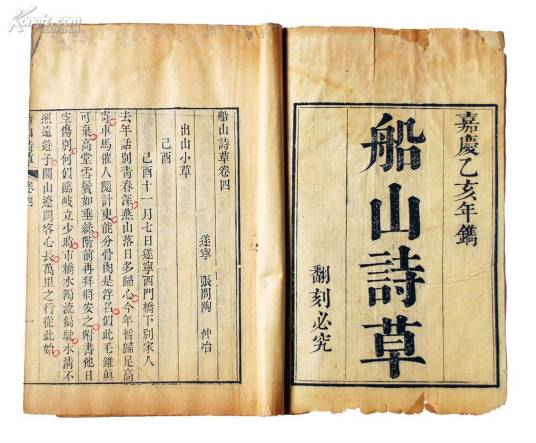 嘉慶乙亥年鐫
船山詩草
翻刻必究
船山詩草卷四
遂寧 張問陶 仲冶
出山小草
己酉
己酉十一月七日遂寧西門橋下別家人
去年話別青春深燕山落日多歸心今年暫歸足高
寄車馬催人隨計東能分骨肉是浮名似此毛錐真
可棄高堂雪鬢如垂絲階前再拜將安之附書他日
空傷別何似臨岐立少時市橋水濁流觴駛水清不
照遠遊子關山遼闊客心長萬里之行從此始
船山詩草 卷四
Kongfz.com